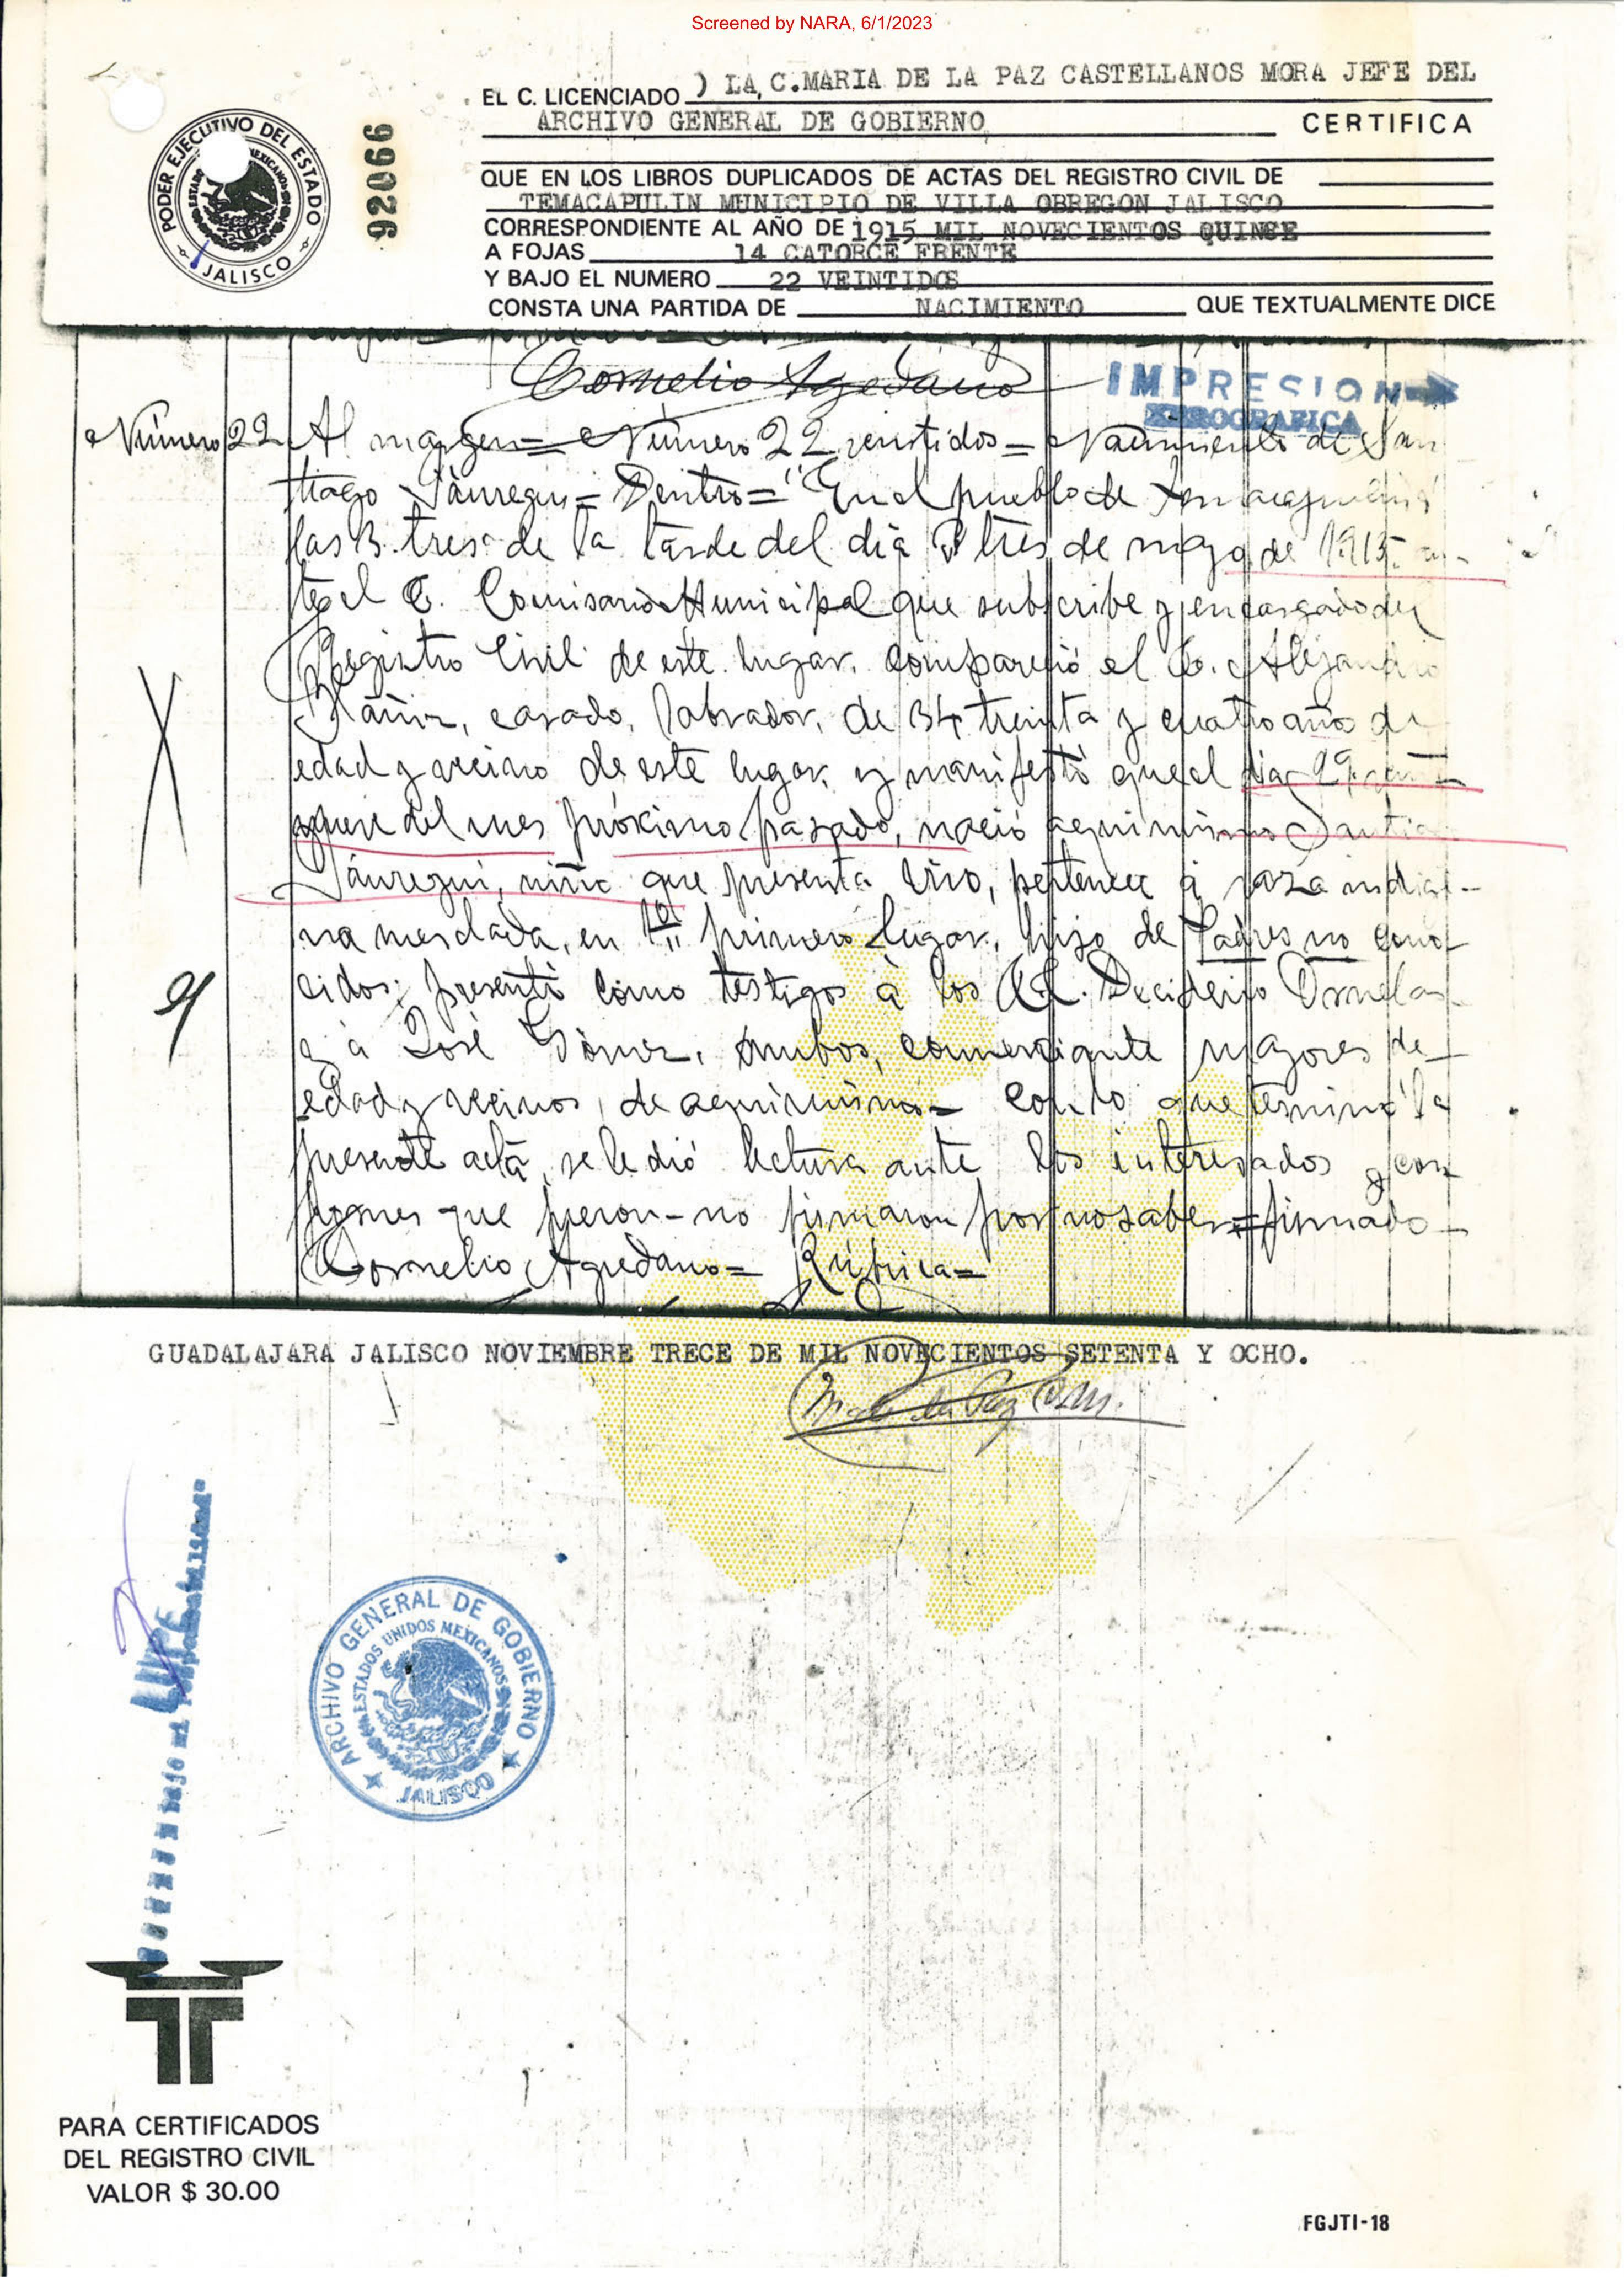 Screened by NARA, 6/1/2023
EL C. LICENCIADO ) LA, C.MARIA DE LA PAZ CASTELLANOS MORA JEFE DEL
ARCHIVO GENERAL DE GOBIERNO CERTIFICA
PODER EJECUTIVO DEL ESTADO
JALISCO
92066
QUE EN LOS LIBROS DUPLICADOS DE ACTAS DEL REGISTRO CIVIL DE
TEMACAPULIN MUNICIPIO DE VILLA OBREGON JALISCO
CORRESPONDIENTE AL AÑO DE 1915 MIL NOVECIENTOS QUINCE
A FOJAS 14 CATORCE FRENTE
Y BAJO EL NUMERO 22 VEINTIDOS
CONSTA UNA PARTIDA DE NACIMIENTO QUE TEXTUALMENTE DICE
Cornelio Agredano
IMPRESION
XEROGRAFICA
Número 22 Al margen= Número 22 veintidos= Nacimiento de San
tiago Jáuregui= Dentro= "En el pueblo de
las 3 tres de la tarde del día 3 tres de mayo de 1915 an-
te el C. Comisario Municipal que subscribe y encargado del
Registro Civil de este lugar, compareció el C. Alejandro
casado, labrador, de 34 treinta y cuatro año de
edad y vecino de este lugar, y manifestó que el día 29
nueve del mes próximo pasado, nació aquí mismo Santia
Jáuregui, niño que presenta vivo, pertenece á raza indíge-
na mesclada, en 1er primero lugar, hijo de Padres no cono-
cidos; presentó como testigos á los CC. Deciderio Ornelas
y á José Gómez, ambos, comerciante mayores de
edad y vecinos, de aquí mismo= Con lo que terminó la
presente acta, se le dió lectura ante los interesados y con
formes que fueron-no firmaron por no saber=firmado-
Cornelio Agredano= Rúbrica=
GUADALAJARA JALISCO NOVIEMBRE TRECE DE MIL NOVECIENTOS SETENTA Y OCHO.
LUPE
ARCHIVO GENERAL DE GOBIERNO
ESTADOS UNIDOS MEXICANOS
JALISCO
PARA CERTIFICADOS
DEL REGISTRO CIVIL
VALOR $ 30.00
FGJTI-18